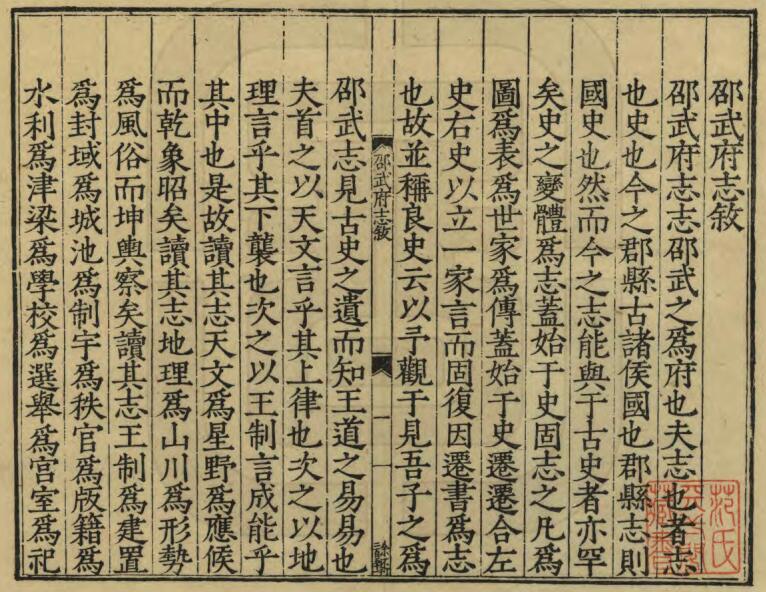 邵武府志敘
邵武府志志邵武之爲府也夫志也者志
也史也今之郡縣古諸侯國也郡縣志則
國史也然而今之志能與于古史者亦罕
矣史之變體爲志蓋始于史固志之凡爲
圖爲表爲世家爲傳蓋始于史遷遷合左
史右史以立一家言而固復因遷書爲志
也故並稱良史云以予觀于見吾子之爲
邵武府志敘
一
邵武志見古史之遺而知王道之易易也
夫首之以天文言乎其上律也次之以地
理言乎其下襲也次之以王制言成能乎
其中也是故讀其志天文爲星野爲應候
而乾象昭矣讀其志地理爲山川爲形勢
爲風俗而坤輿察矣讀其志王制爲建置
爲封域爲城池爲制宇爲秩官爲版籍爲
水利爲津梁爲學校爲選舉爲宮室爲祀
范氏
藏書